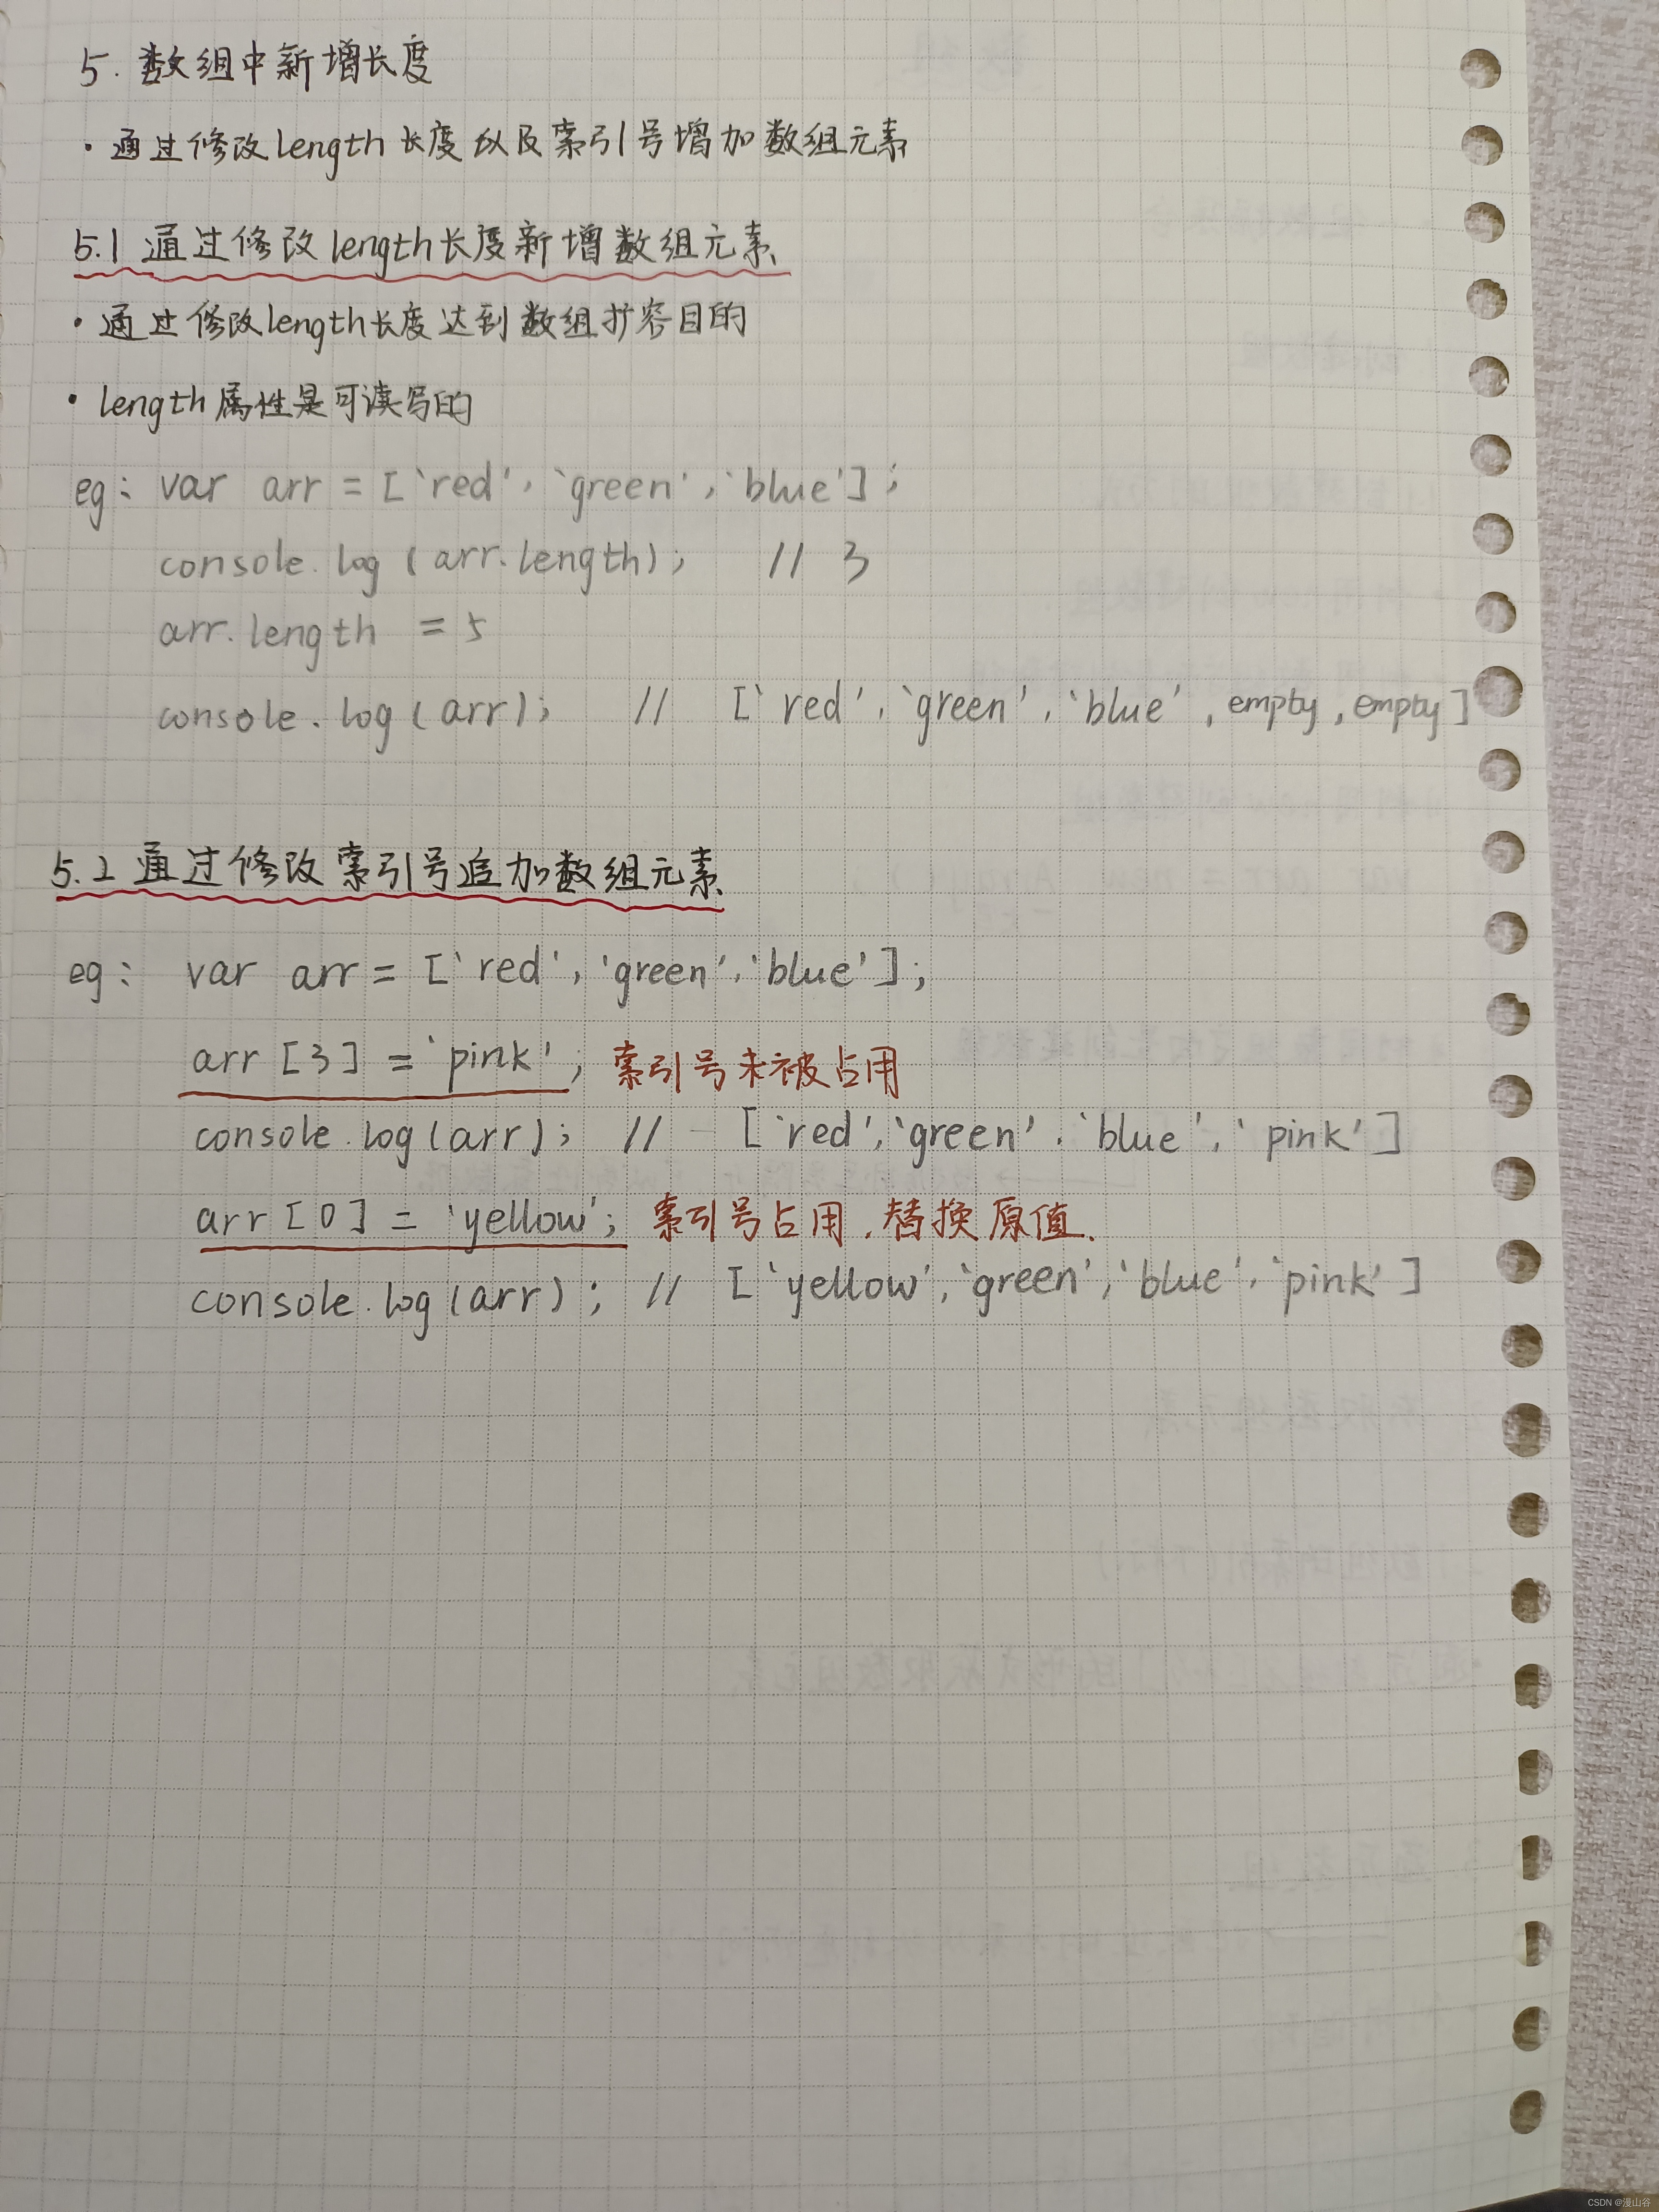 5. 数组中新增长度
· 通过修改length长度以及索引号增加数组元素
5.1 通过修改length长度新增数组元素
· 通过修改length长度达到数组扩容目的
· length属性是可读写的
eg: var arr = ['red', 'green', 'blue'];
console.log(arr.length); // 3
arr.length = 5
console.log(arr); // ['red', 'green', 'blue', empty, empty]
5.2 通过修改索引号追加数组元素
eg: var arr = ['red', 'green', 'blue'];
arr[3] = 'pink'; 索引号未被占用
console.log(arr); // ['red', 'green', 'blue', 'pink']
arr[0] = 'yellow'; 索引号占用,替换原值.
console.log(arr); // ['yellow', 'green', 'blue', 'pink']
CSDN @漫山谷